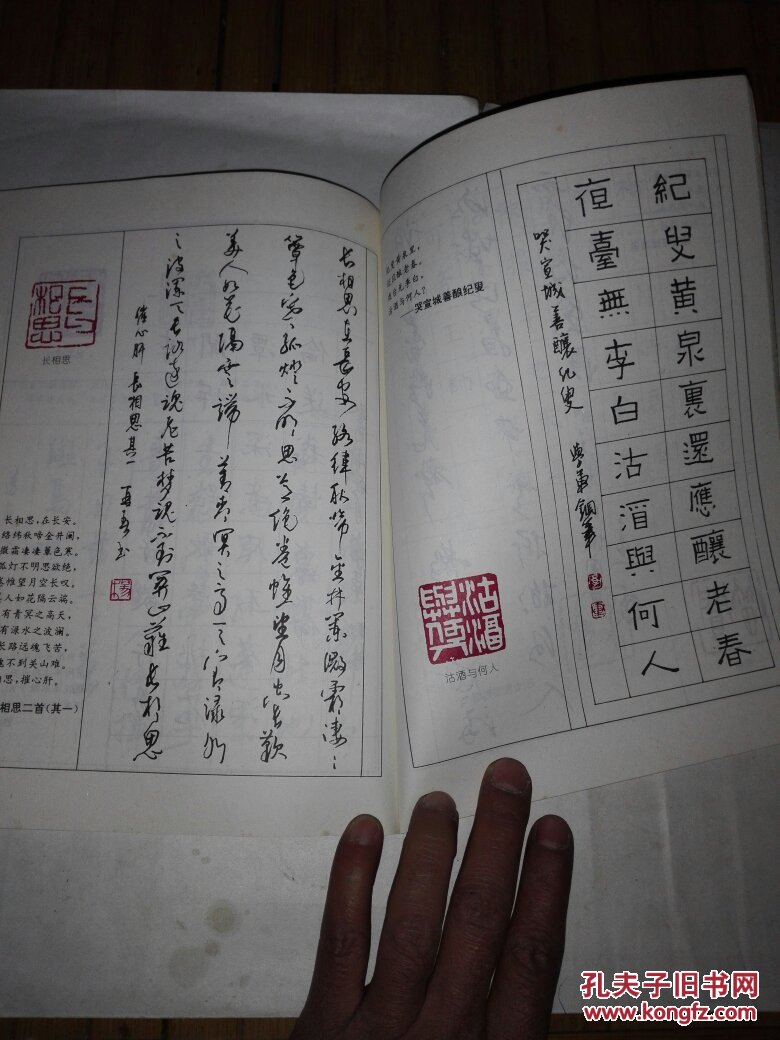 紀叟黄泉裏還應釀老春
夜臺無李白沽酒與何人
哭宣城善釀纪叟
鋼筆
纪叟黄泉里,
还应酿老春。
夜台无李白,
沽酒与何人?
——哭宣城善酿纪叟
沽酒與何人
沽酒与何人
长相思在長安絡緯秋啼金井闌微霜凄〻
簟色寒孤燈不明思欲绝卷帷望月空长歎
美人如花隔雲端上有青冥之高天下有渌水
之波澜天长路远魂飛苦梦魂不到関山難长相思
摧心肝 长相思其一
长相思
长相思
长相思,在长安。
络纬秋啼金井阑,
微霜凄凄簟色寒。
孤灯不明思欲绝,
卷帷望月空长叹。
美人如花隔云端。
有青冥之高天,
有渌水之波澜。
长路远魂飞苦,
魂不到关山难。
相思,摧心肝。
相思二首(其一)
孔夫子旧书网
www.kongfz.com